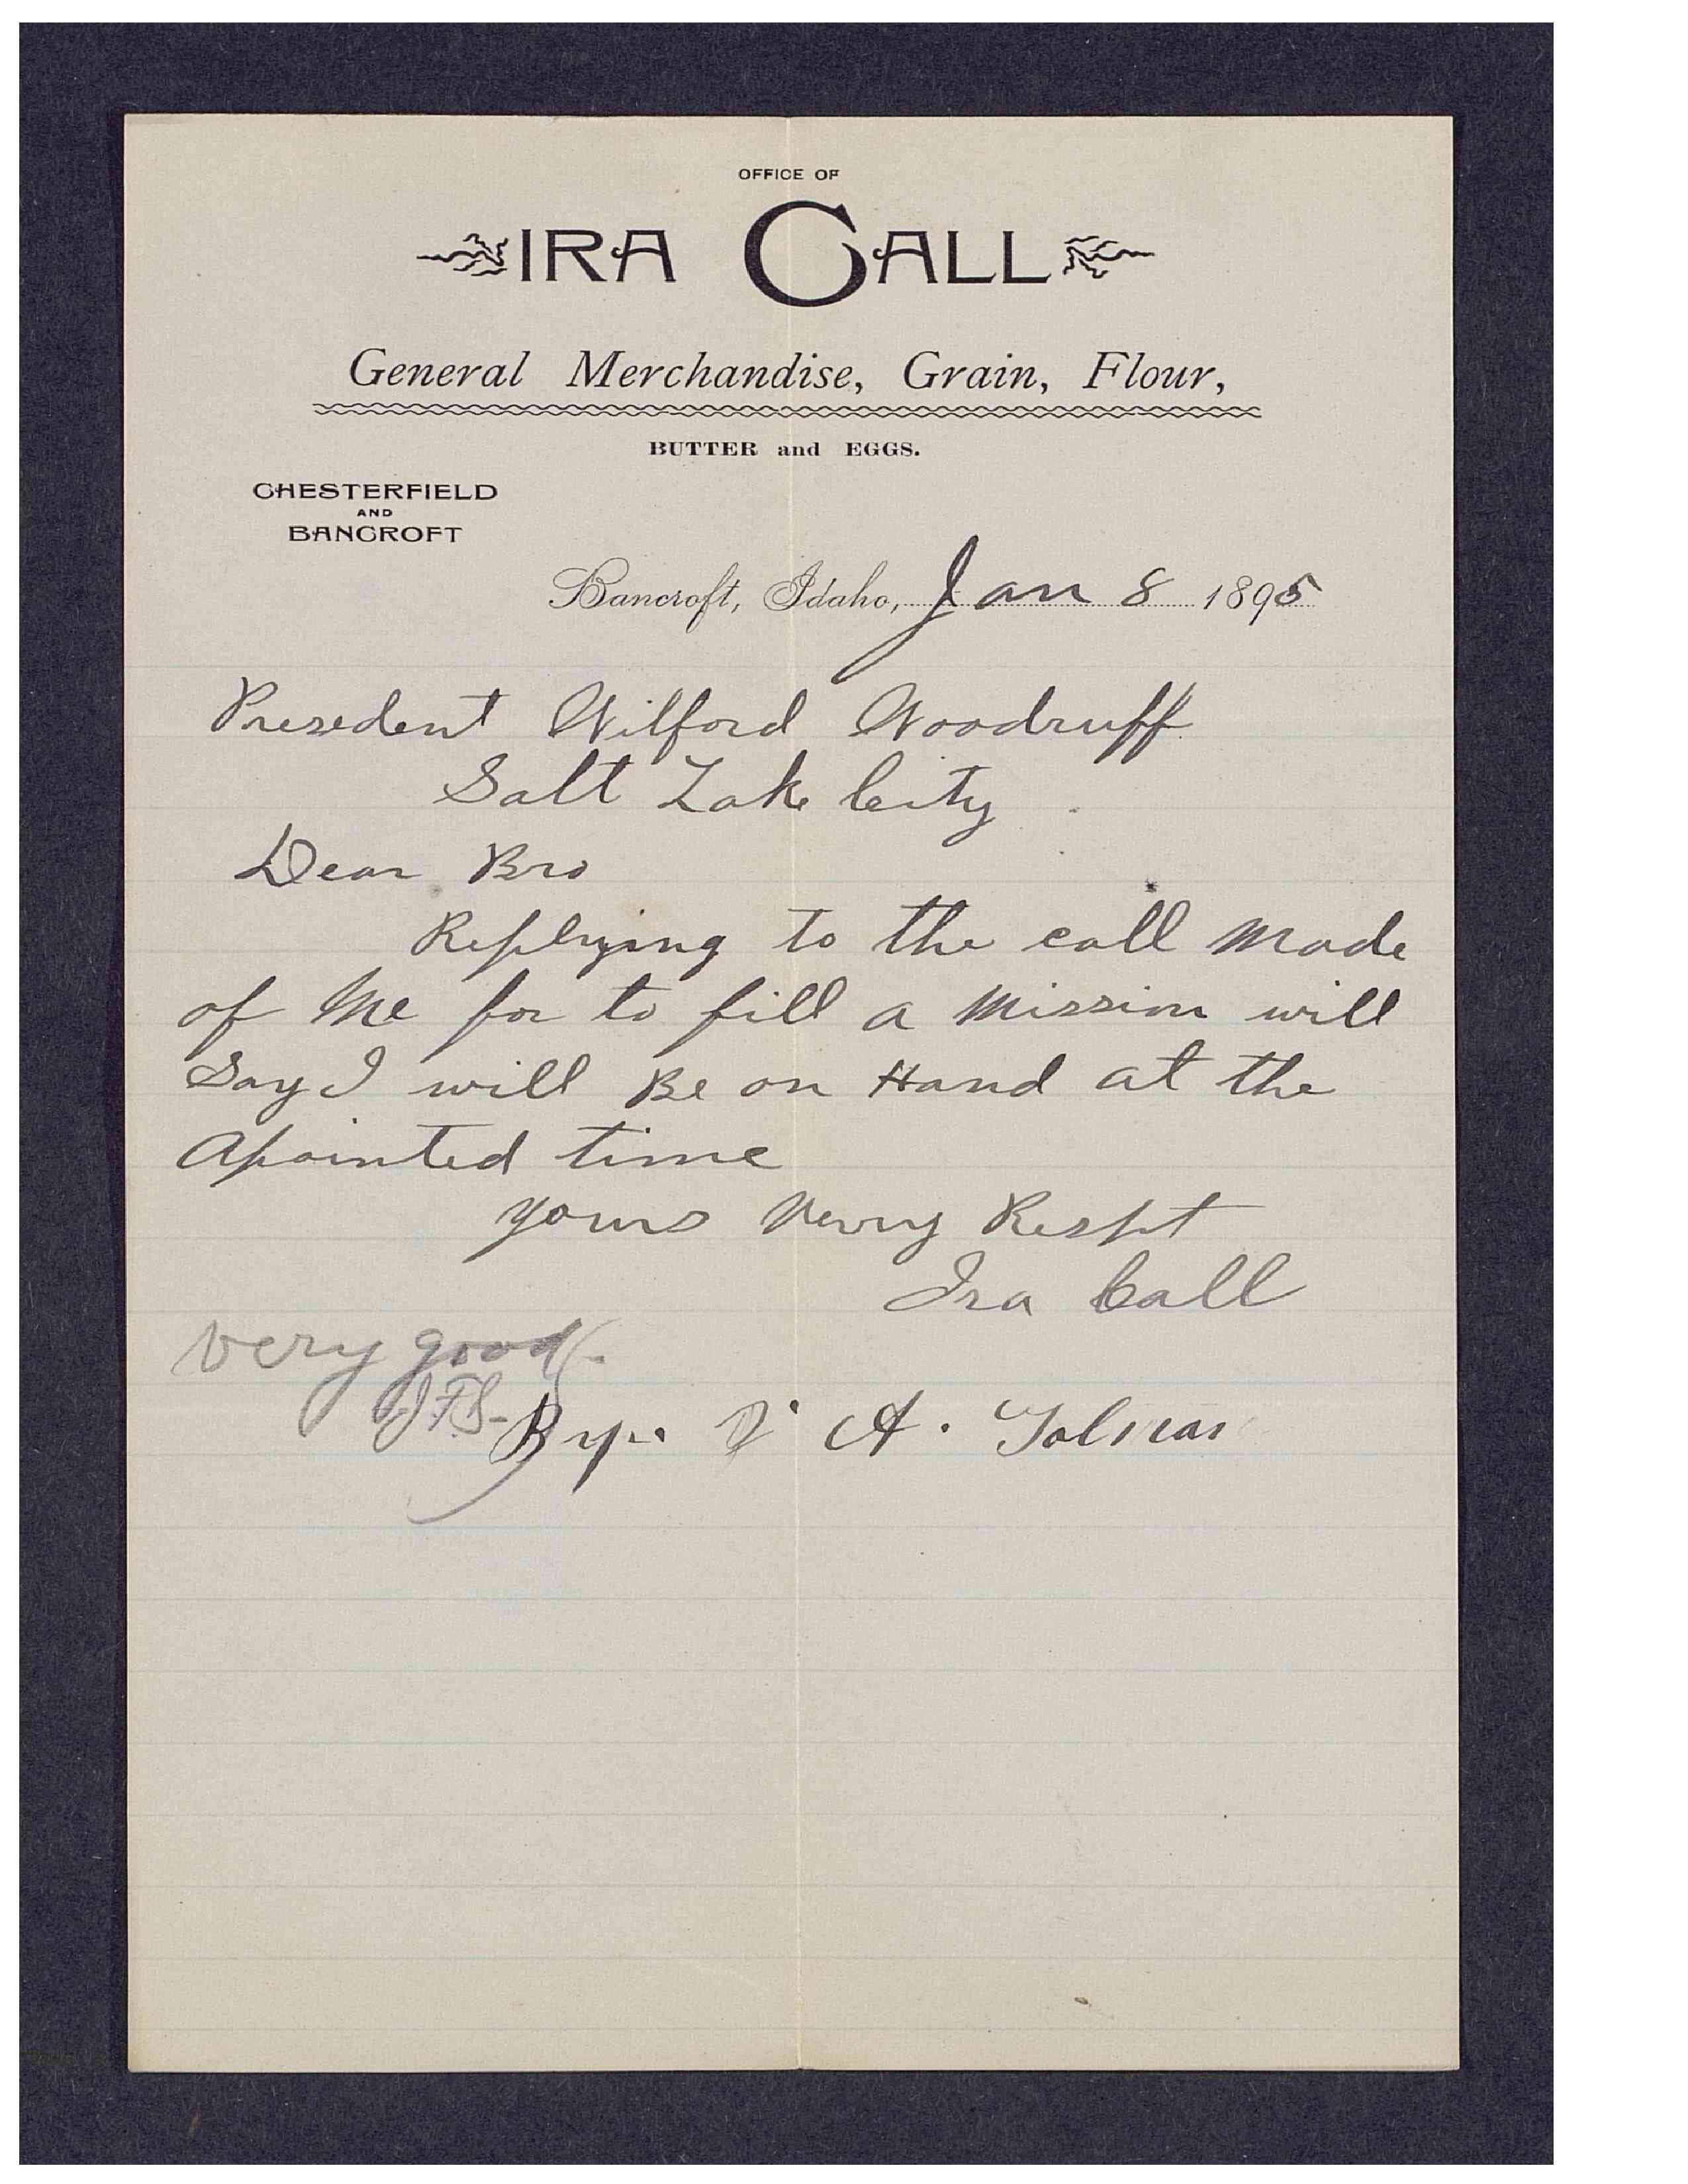 OFFICE OF
IRA CALL
General Merchandise, Grain, Flour,
BUTTER and EGGS.
CHESTERFIELD
AND
BANCROFT
Bancroft, Idaho, Jan 8 1895
Presedent Wilford Woodruff
Salt Lake City
Dear Bro
Replying to the call Made
of Me for to fill a Mission will
Say I will Be on Hand at the
Apointed time
yours Verry Respt
Ira Call
very good.
J.F.S.
A.